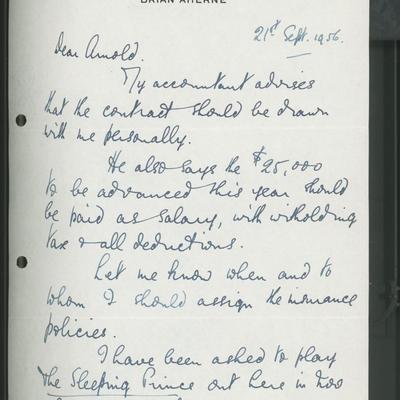 BRIAN AHERNE
21st Sept. 1956.
Dear Arnold.
My accountant advises
that the contract should be drawn
with me personally.
He also says the $25,000
to be advanced this year should
be paid as salary, with witholding
tax & all deductions.
Let me know when and to
whom I should assign the insurance
policies.
I have been asked to play
The Sleeping Prince out here in